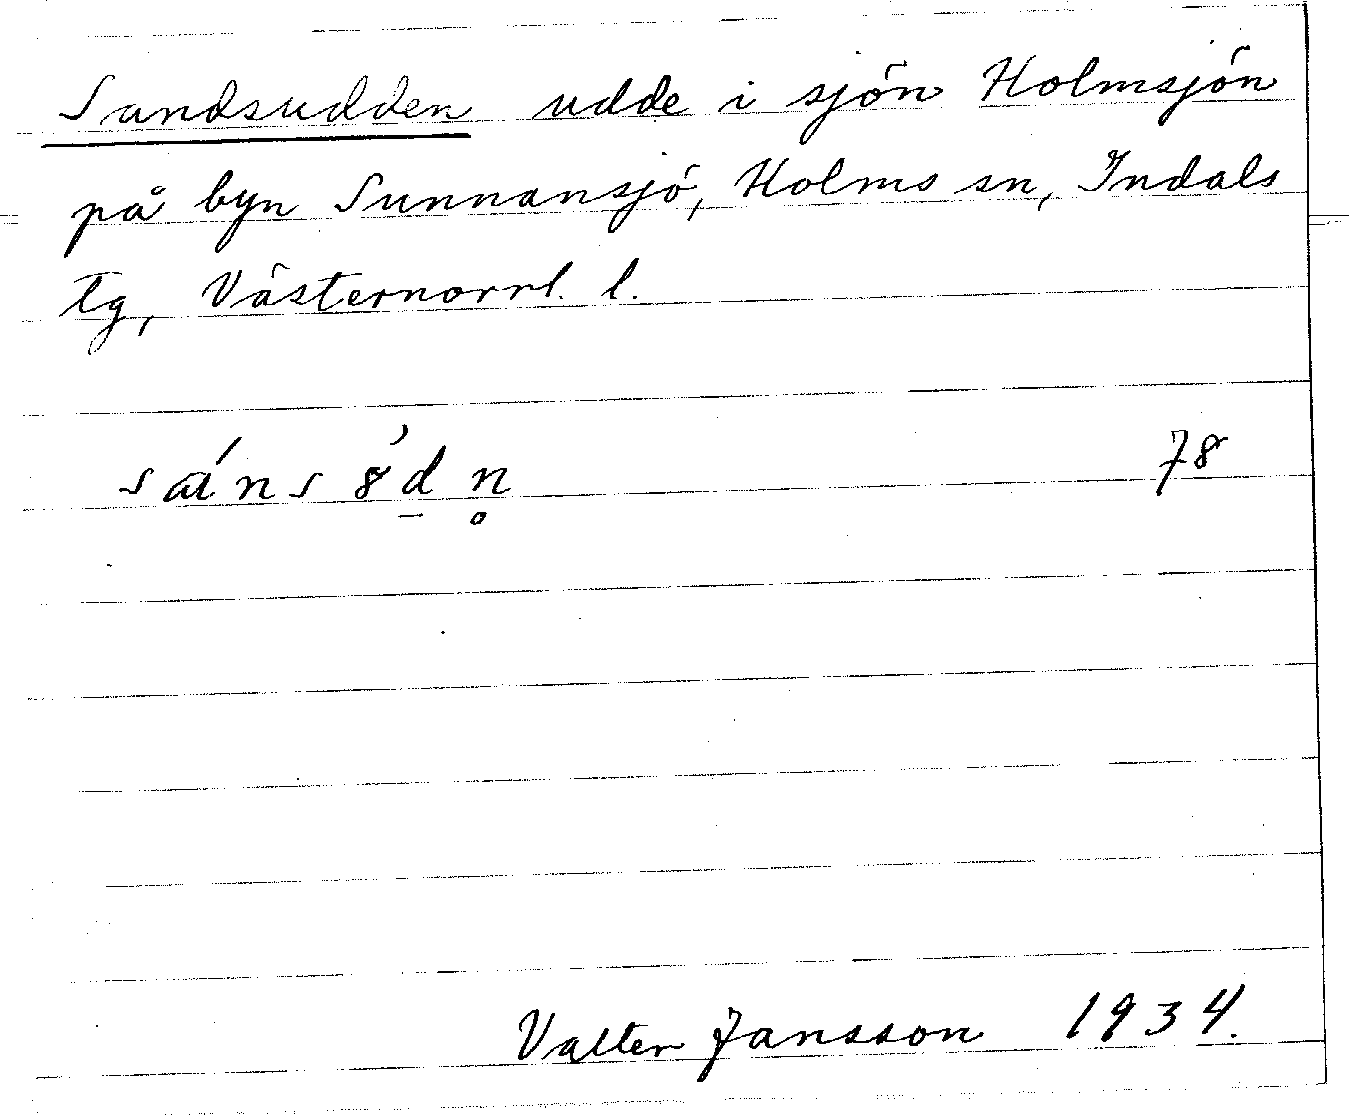 Sandsudden udde i sjön Holmsjön
på byn Sunnansjö, Holms sn, Indals
tg, Västernorrl. l.
sáns 8̓d̲n̥ 78
Valter Jansson 1934.